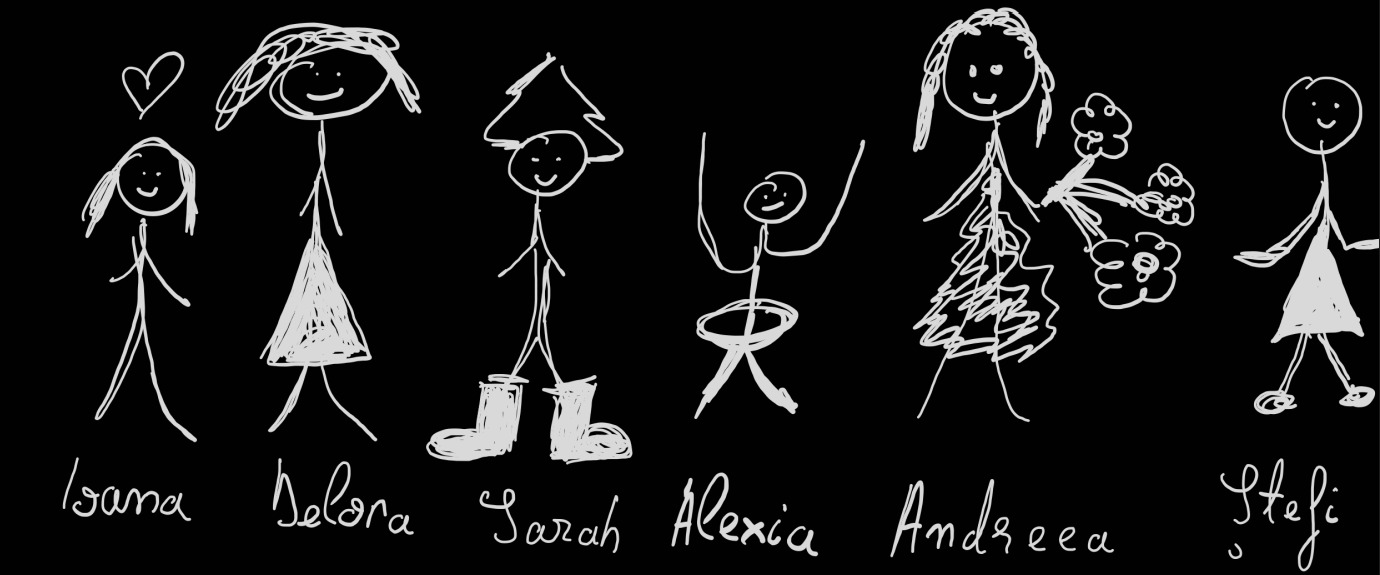 Ioana Delora Sarah Alexia Andreea Ștefi